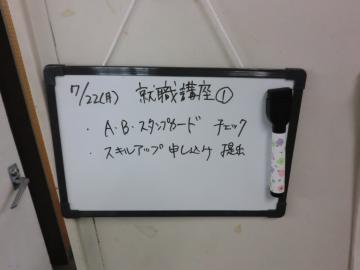 7/22(月) 就職講座①
・A・B・スタンプカード チェック
・スキルアップ 申し込み 提出